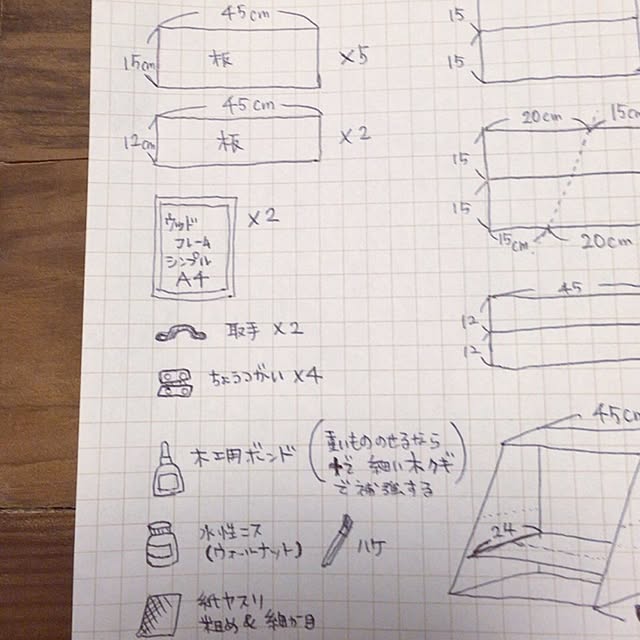 45cm
15cm
板
×5
45cm
12cm
板
×2
ウッド
フレーム
シンプル
A4
×2
取手 ×2
ちょうつがい ×4
木工用ボンド
重いもののせるなら
細い木クギ
で補強する
水性ニス
(ウォールナット)
ハケ
紙ヤスリ
粗め & 細か目
15
15
20cm
15cm
15
15
15cm
20cm
45
12
12
45cm
24